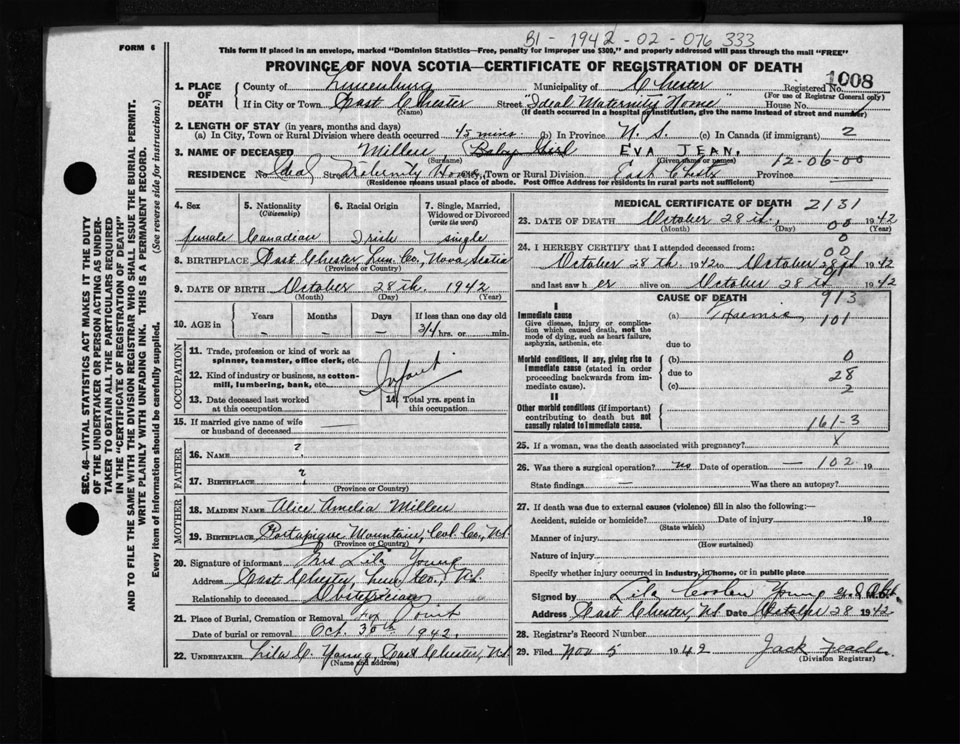 BI - 1942 - 02 - 076 333
FORM 6
This form if placed in an envelope, marked "Dominion Statistics—Free, penalty for improper use $300," and properly addressed will pass through the mail "FREE"
PROVINCE OF NOVA SCOTIA—CERTIFICATE OF REGISTRATION OF DEATH
1008
1. PLACE OF DEATH
County of Lunenburg Municipality of Chester Registered No.
(For use of Registrar General only)
If in City or Town East Chester Street "Ideal Maternity Home" House No.
(Name) (If death occurred in a hospital or institution, give the name instead of street and number)
2. LENGTH OF STAY (in years, months and days)
(a) In City, Town or Rural Division where death occurred 45 mins. (b) In Province N. S. (c) In Canada (if immigrant) 2
3. NAME OF DECEASED Miller, Baby Girl EVA JEAN.
(Surname) (Given name or names) 12-06-00
RESIDENCE No. Ideal Street Maternity Home, City, Town or Rural Division East Chester Province
(Residence means usual place of abode. Post Office Address for residents in rural parts not sufficient)
4. Sex 5. Nationality (Citizenship) 6. Racial Origin 7. Single, Married, Widowed or Divorced (write the word)
female Canadian Irish single
8. BIRTHPLACE East Chester Lun. Co., Nova Scotia
(Province or County)
9. DATE OF BIRTH October 28th. 1942
(Month) (Day) (Year)
10. AGE in Years Months Days If less than one day old
- - - 3/4 hrs. or min.
OCCUPATION
11. Trade, profession or kind of work as spinner, teamster, office clerk, etc.
12. Kind of industry or business, as cotton-mill, lumbering, bank, etc. Infant
13. Date deceased last worked at this occupation 14. Total yrs. spent in this occupation
15. If married give name of wife or husband of deceased —
FATHER
16. NAME ?
17. BIRTHPLACE ?
(Province or County)
MOTHER
18. MAIDEN NAME Alice Amelia Miller
19. BIRTHPLACE Portapique Mountain, Col. Co., N.S.
(Province or County)
20. Signature of informant Mrs Lila Young
Address East Chester, Lun. Co., N.S.
Relationship to deceased Obstetrician
21. Place of Burial, Cremation or Removal Fox Point
Date of burial or removal Oct. 30th 1942.
22. UNDERTAKER Lila C. Young, East Chester, N.S.
(Name and address)
MEDICAL CERTIFICATE OF DEATH 2131
23. DATE OF DEATH October 28th. 00 1942
(Month) (Day) (Year)
0
24. I HEREBY CERTIFY that I attended deceased from: 00
October 28th. 1942 to October 28th 1942
and last saw her alive on October 28th 1942
CAUSE OF DEATH 913
I
Immediate cause (a) 101
Give disease, injury or complication which caused death, not the mode of dying, such as heart failure, asphyxia, asthenia, etc
due to
Morbid conditions, if any, giving rise to immediate cause (stated in order proceeding backwards from immediate cause). (b) 0
due to 28
(c) 2
II
Other morbid conditions (if important) contributing to death but not causally related to immediate cause. 161-3
25. If a woman, was the death associated with pregnancy? x
26. Was there a surgical operation? no Date of operation — 102 19
State findings — Was there an autopsy?
27. If death was due to external causes (violence) fill in also the following:—
Accident, suicide or homicide? Date of injury 19
(State which)
Manner of injury
(How sustained)
Nature of injury
Specify whether injury occurred in Industry, in home, or in public place
Signed by Lila Coolen Young
Address East Chester, N.S. Date October 28 1942
28. Registrar's Record Number
29. Filed Nov 5 1942 Jack
(Division Registrar)
SEC. 46—VITAL STATISTICS ACT MAKES IT THE DUTY
OF THE UNDERTAKER OR PERSON ACTING AS UNDER-
TAKER TO OBTAIN ALL THE PARTICULARS REQUIRED
IN THE "CERTIFICATE OF REGISTRATION OF DEATH"
AND TO FILE THE SAME WITH THE DIVISION REGISTRAR WHO SHALL ISSUE THE BURIAL PERMIT.
WRITE PLAINLY WITH UNFADING INK. THIS IS A PERMANENT RECORD.
Every item of Information should be carefully supplied. (See reverse side for instructions.)